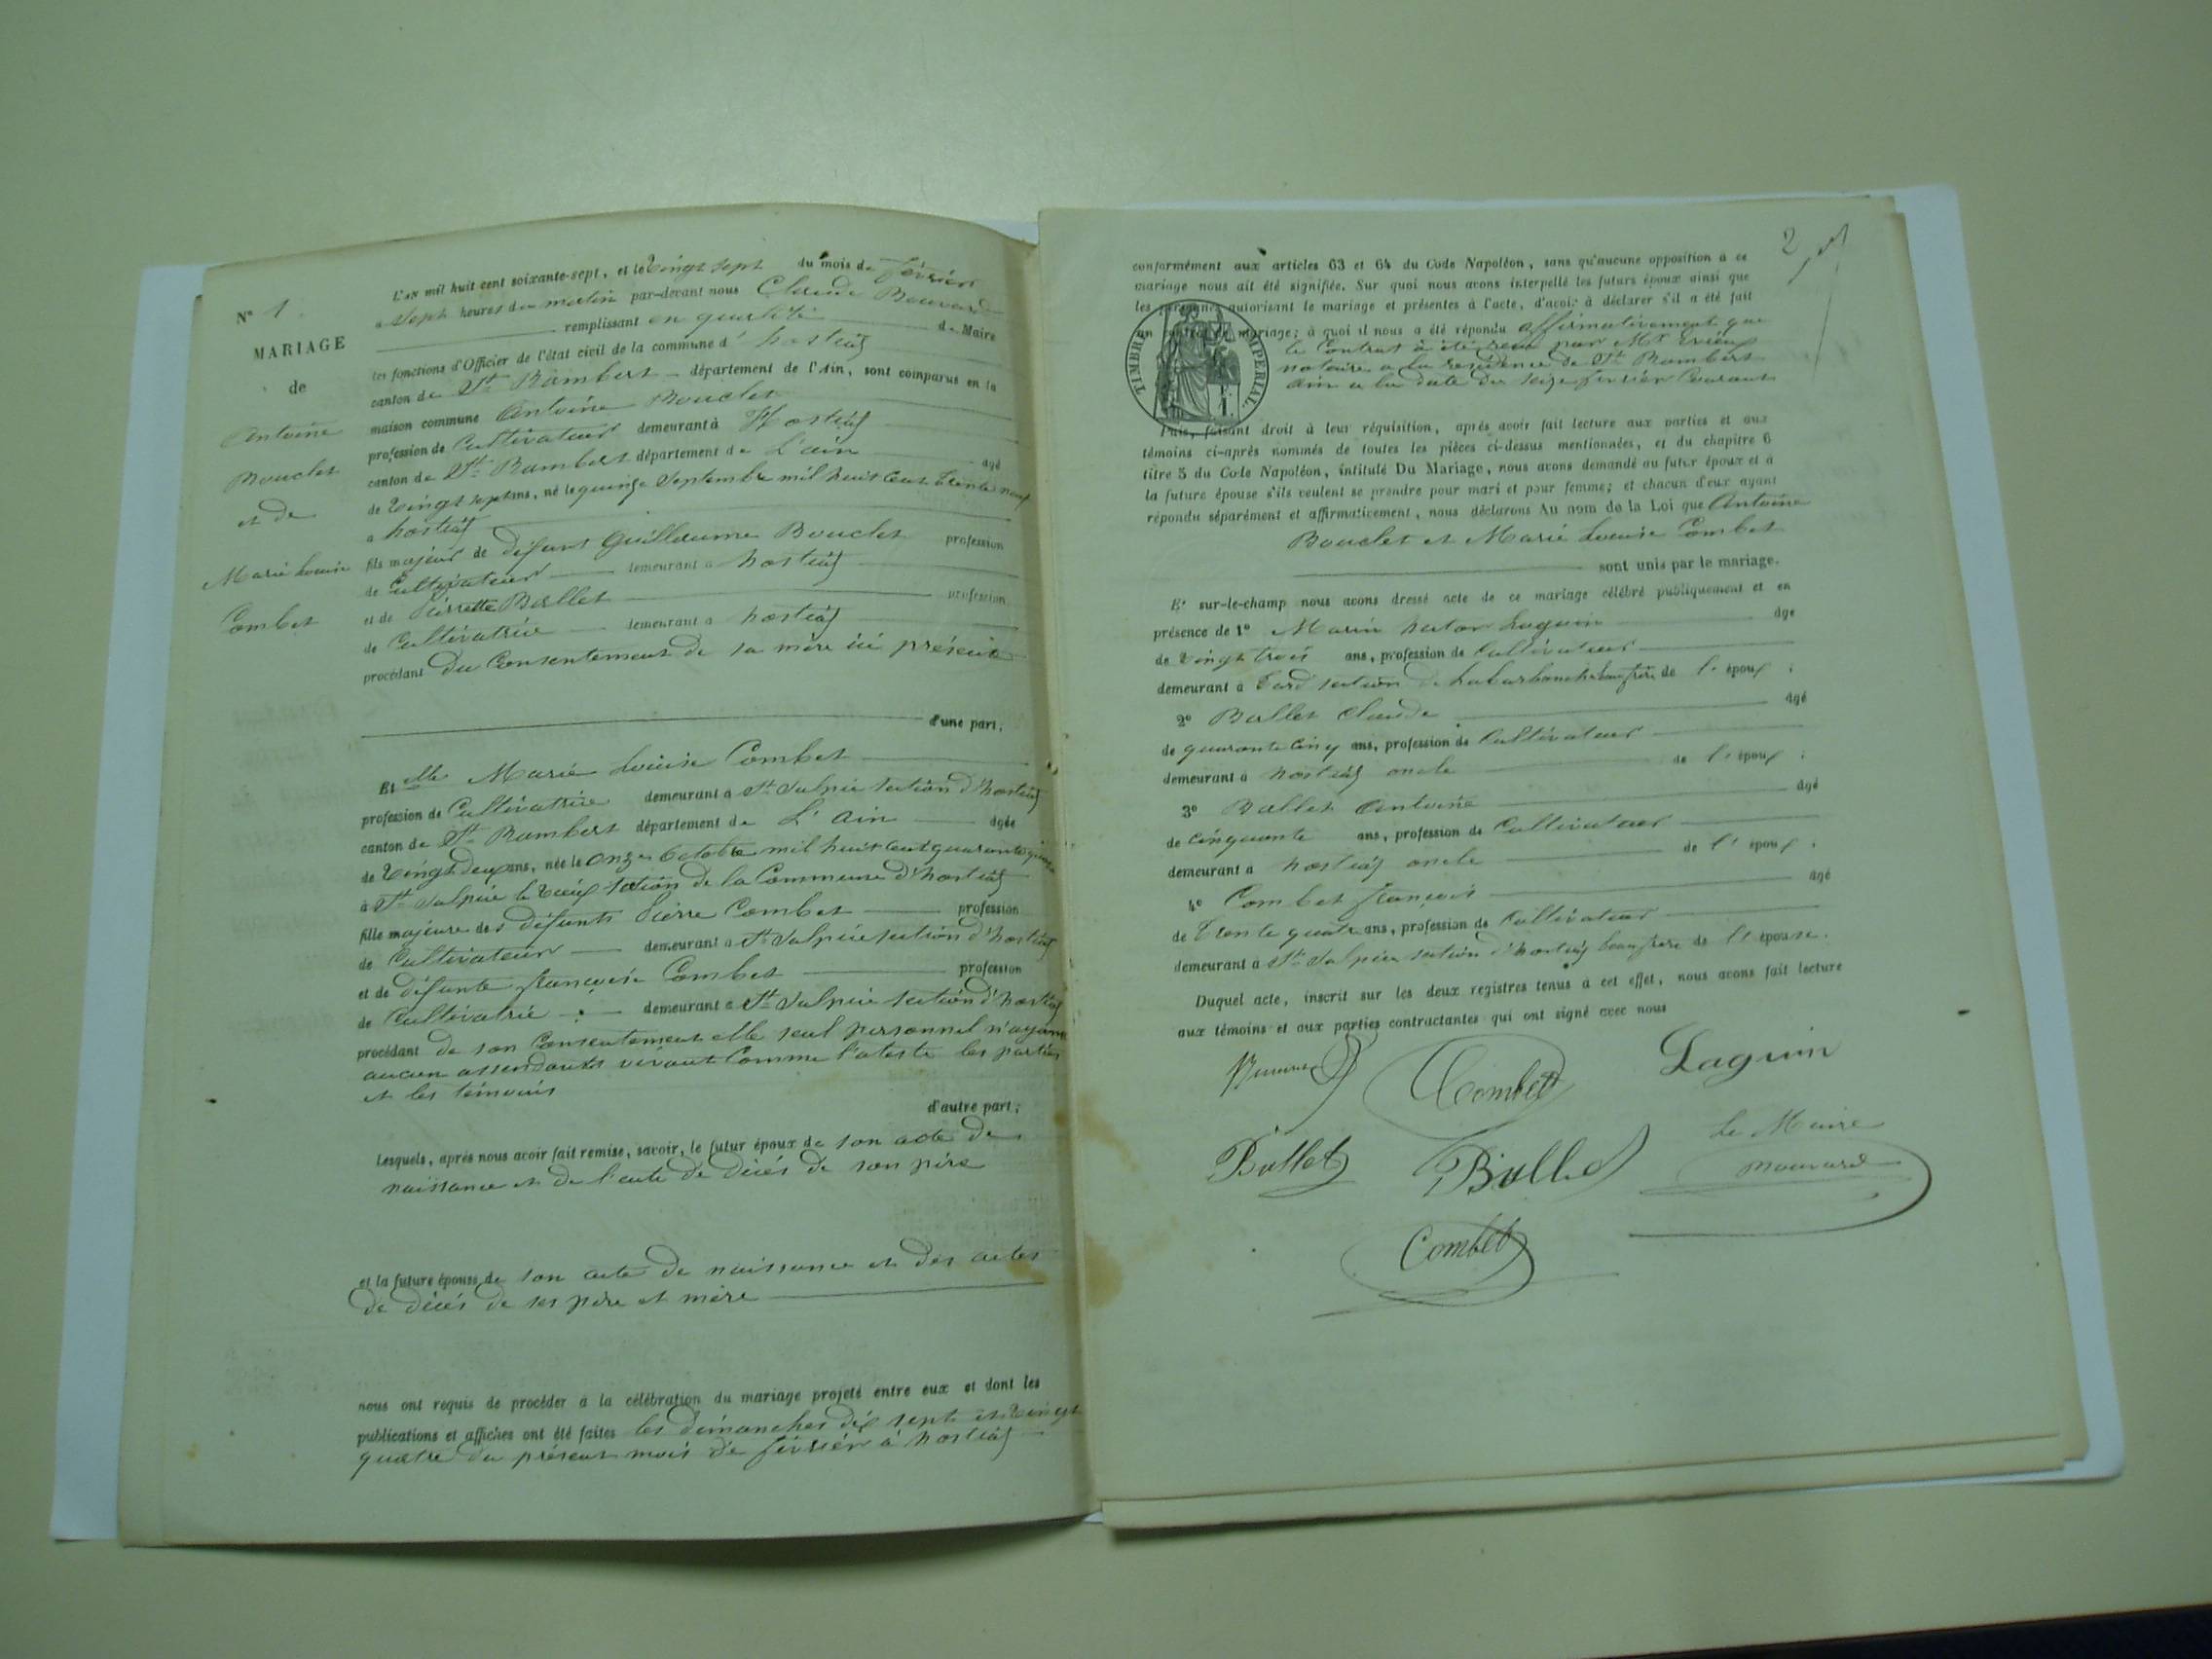 N° 1
MARIAGE
de
Antoine
Bouclet
et de
Marie Louise
Combet
L'an mil huit cent soixante-sept, et le vingt sept du mois de février
a sept heures du matin par-devant nous Claude
remplissant en qualité de Maire
les fonctions d'Officier de l'état civil de la commune d' hostiaz
canton de St Rambert département de l'Ain, sont comparus en la
maison commune Antoine Bouclet
profession de Cultivateur demeurant à Hostiaz
canton de St Rambert département de L'ain agé
de vingt sept ans, né le quinze Septembre mil huit cent trente neuf
a hostiaz
fils majeur de défunt Guillaume Bouclet profession
de Cultivateur demeurant a hostiaz
et de Pierrette Ballet profession
de Cultivatrice demeurant a hostiaz
procédant du Consentement de sa mère ici présente
d'une part;
Et elle Marie Louise Combet
profession de Cultivatrice demeurant a St Sulpice section d'hostiaz
canton de St Rambert département de L'ain agée
de vingt deux ans, née le onze octobre mil huit cent quarante
à St Sulpice le vieux section de la Commune d'hostiaz
fille majeure des défunts Pierre Combet profession
de Cultivateur demeurant a St Sulpice section d'hostiaz
et de défunte françoise Combet profession
de Cultivatrice demeurant a St Sulpice section d'hostiaz
procédant de son Consentement elle seul personnel n'ayant
aucun assendants vivant Comme l'ateste les parties
et les témoins
d'autre part;
Lesquels, après nous avoir fait remise, savoir, le futur époux de son acte de
naissance et de l'acte de décès de son père
et la future épouse de son acte de naissance et des actes
de décès de ses père et mère
nous ont requis de procéder à la célébration du mariage projeté entre eux et dont les
publications et affiches ont été faites les dimanches dix sept et vingt
quatre du présent mois de février à hostiaz
2
conformément aux articles 63 et 64 du Code Napoléon, sans qu'aucune opposition à ce
mariage nous ait été signifiée. Sur quoi nous avons interpellé les futurs époux ainsi que
les personnes autorisant le mariage et présentes à l'acte, d'avoir à déclarer s'il a été fait
un contrat de mariage; à quoi il nous a été répondu affirmativement que
le Contrat à été reçu par Mt
notaire a la résidence de St Rambert
ain a la date du seize février Courant
TIMBRE IMPERIAL
Puis, faisant droit à leur réquisition, après avoir fait lecture aux parties et aux
témoins ci-après nommés de toutes les pièces ci-dessus mentionnées, et du chapitre 6
titre 5 du Code Napoléon, intitulé Du Mariage, nous avons demandé au futur époux et à
la future épouse s'ils veulent se prendre pour mari et pour femme; et chacun d'eux ayant
répondu séparément et affirmativement, nous déclarons Au nom de la Loi que Antoine
Bouclet et Marie Louise Combet
sont unis par le mariage.
Et sur-le-champ nous avons dressé acte de ce mariage célébré publiquement et en
présence de 1° Marin Laguin âgé
de vingt trois ans, profession de Cultivateur
demeurant à section de beau frère de l' époux ;
2° Ballet Claude âgé
de quarante cinq ans, profession de Cultivateur
demeurant à hostiaz oncle de l' époux ;
3° Ballet Antoine âgé
de cinquante ans, profession de Cultivateur
demeurant a hostiaz oncle de l' époux ;
4° Combet françois âgé
de trente quatre ans, profession de Cultivateur
demeurant à St Sulpice section d'hostiaz beau frère de l' épouse.
Duquel acte, inscrit sur les deux registres tenus à cet effet, nous avons fait lecture
aux témoins et aux parties contractantes qui ont signé avec nous
Combet
Laguin
Ballet
Ballet
Le Maire
Combet